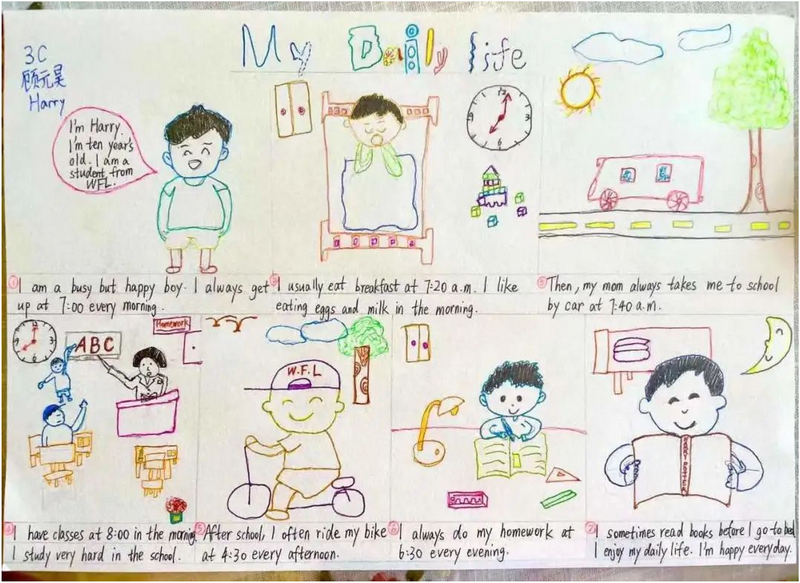 My Daily life
3C
顾元昊
Harry
I'm Harry.
I'm ten year's
old. I am a
student from
WFL.
① I am a busy but happy boy. I always get
up at 7:00 every morning.
② I usually eat breakfast at 7:20 a.m. I like
eating eggs and milk in the morning.
③ Then, my mom always takes me to school
by car at 7:40 a.m.
ABC
Homework
④ I have classes at 8:00 in the morning
I study very hard in the school.
W.F.L
⑤ After school, I often ride my bike
at 4:30 every afternoon.
⑥ I always do my homework at
6:30 every evening.
⑦ I sometimes read books before I go to bed
I enjoy my daily life. I'm happy everyday.